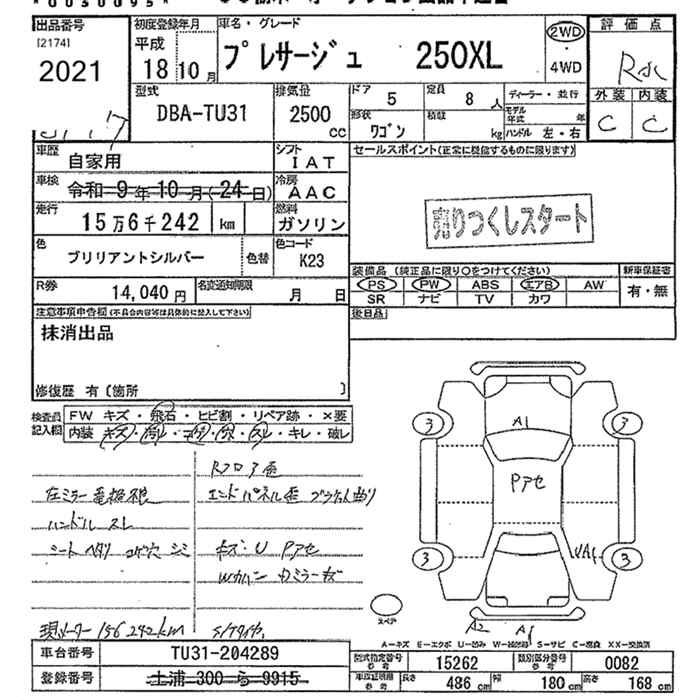 出品番号
[2174]
2021
初度登録年月
平成 18年10月
車名・グレード
プレサージュ 250XL
2WD
・
4WD
評価点
R
外装 内装
C C
型式
DBA-TU31
排気量
2500 CC
ドア 5
定員 8 人
ディーラー・並行
形状 ワゴン
積載 kg
モデル年式 年
ハンドル 左・右
車歴 自家用
シフト IAT
セールスポイント(正常に機能するものに限ります)
売りつくしスタート
車検 令和 9年 10月(24日)
冷房 AAC
走行 15万6千242 km
燃料 ガソリン
色 ブリリアントシルバー 色替
色コード K23
R券 14,040円
名変通知期限 月 日
装備品 (純正品に限り○をつけてください)
新車保証書
PS PW ABS エアB AW
SR ナビ TV カワ
有・無
後日品
注意事項申告欄(不具合内容等は具体的に記入して下さい)
抹消出品
修復歴 有〔箇所 〕
検査員記入欄
FW キズ・飛石・ヒビ割・リペア跡・×要
内装 キズ・汚レ・コゲ・穴・スレ・キレ・破レ
Rフロア歪
左ミラー電格不良
エンドパネル歪 ブラケット曲り
ハンドル スレ
シート ヘタリ コゲ穴 シミ
キズ・U Pアセ
Wカバー
現メーター156242km
A1
3 3
Pアセ
UA1
3 3
スペア
A2 A1
A-キズ E-エクボ U-凹み W-補修跡 S-サビ C-腐食 XX-交換済
車台番号 TU31-204289
登録番号 土浦 300 ら 9915
型式指定番号 参考 15262
類別区分番号 参考 0082
車検証明細 参考 長さ 486 cm 幅 180 cm 高さ 168 cm